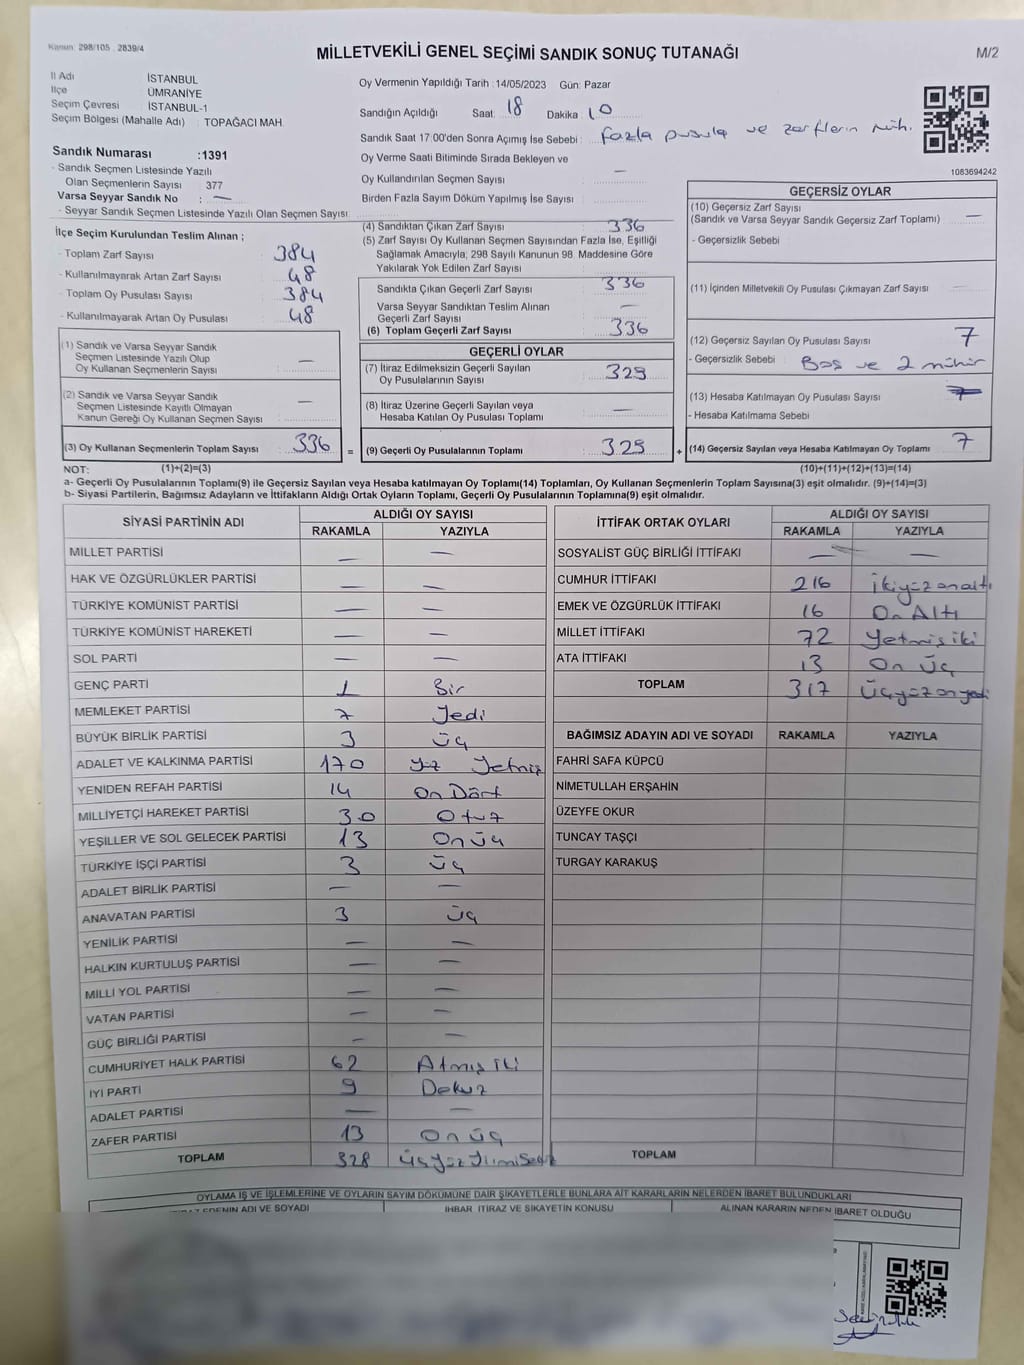 Kanun: 298/105 , 2839/4
MİLLETVEKİLİ GENEL SEÇİMİ SANDIK SONUÇ TUTANAĞI
M/2
İl Adı İSTANBUL
İlçe ÜMRANİYE
Seçim Çevresi İSTANBUL-1
Seçim Bölgesi (Mahalle Adı) : TOPAĞACI MAH.
Sandık Numarası :1391
- Sandık Seçmen Listesinde Yazılı
Olan Seçmenlerin Sayısı : 377
Varsa Seyyar Sandık No : —
- Seyyar Sandık Seçmen Listesinde Yazılı Olan Seçmen Sayısı
Oy Vermenin Yapıldığı Tarih : 14/05/2023 Gün: Pazar
Sandığın Açıldığı Saat: 18 Dakika 10
Sandık Saat 17:00'den Sonra Açımış İse Sebebi : Fazla pusula ve zarfların müh.
Oy Verme Saati Bitiminde Sırada Bekleyen ve
Oy Kullandırılan Seçmen Sayısı : —
Birden Fazla Sayım Döküm Yapılmış İse Sayısı :
1083694242
İlçe Seçim Kurulundan Teslim Alınan ;
- Toplam Zarf Sayısı : 384
- Kullanılmayarak Artan Zarf Sayısı : 48
- Toplam Oy Pusulası Sayısı : 384
- Kullanılmayarak Artan Oy Pusulası : 48
(1) Sandık ve Varsa Seyyar Sandık
Seçmen Listesinde Yazılı Olup
Oy Kullanan Seçmenlerin Sayısı : —
(2) Sandık ve Varsa Seyyar Sandık
Seçmen Listesinde Kayıtlı Olmayan
Kanun Gereği Oy Kullanan Seçmen Sayısı : —
(3) Oy Kullanan Seçmenlerin Toplam Sayısı : 336 =
(4) Sandıktan Çıkan Zarf Sayısı : 336
(5) Zarf Sayısı Oy Kullanan Seçmen Sayısından Fazla İse, Eşitliği
Sağlamak Amacıyla; 298 Sayılı Kanunun 98. Maddesine Göre
Yakılarak Yok Edilen Zarf Sayısı :
Sandıkta Çıkan Geçerli Zarf Sayısı : 336
Varsa Seyyar Sandıktan Teslim Alınan
Geçerli Zarf Sayısı : —
(6) Toplam Geçerli Zarf Sayısı : 336
GEÇERLİ OYLAR
(7) İtiraz Edilmeksizin Geçerli Sayılan
Oy Pusulalarının Sayısı : 329
(8) İtiraz Üzerine Geçerli Sayılan veya
Hesaba Katılan Oy Pusulası Toplamı : —
(9) Geçerli Oy Pusulalarının Toplamı : 329 +
GEÇERSİZ OYLAR
(10) Geçersiz Zarf Sayısı
(Sandık ve Varsa Seyyar Sandık Geçersiz Zarf Toplamı) : —
- Geçersizlik Sebebi :
(11) İçinden Milletvekili Oy Pusulası Çıkmayan Zarf Sayısı :
(12) Geçersiz Sayılan Oy Pusulası Sayısı : 7
- Geçersizlik Sebebi : Boş ve 2 mühür
(13) Hesaba Katılmayan Oy Pusulası Sayısı :
- Hesaba Katılmama Sebebi :
(14) Geçersiz Sayılan veya Hesaba Katılmayan Oy Toplamı : 7
NOT: (1)+(2)=(3) (10)+(11)+(12)+(13)=(14)
a- Geçerli Oy Pusulalarının Toplamı(9) ile Geçersiz Sayılan veya Hesaba katılmayan Oy Toplamı(14) Toplamları, Oy Kullanan Seçmenlerin Toplam Sayısına(3) eşit olmalıdır. (9)+(14)=(3)
b- Siyasi Partilerin, Bağımsız Adayların ve İttifakların Aldığı Ortak Oyların Toplamı, Geçerli Oy Pusulalarının Toplamına(9) eşit olmalıdır.
SİYASİ PARTİNİN ADI ALDIĞI OY SAYISI
RAKAMLA YAZIYLA
MİLLET PARTİSİ — —
HAK VE ÖZGÜRLÜKLER PARTİSİ — —
TÜRKİYE KOMÜNİST PARTİSİ — —
TÜRKİYE KOMÜNİST HAREKETİ — —
SOL PARTİ — —
GENÇ PARTİ 1 Bir
MEMLEKET PARTİSİ 7 Yedi
BÜYÜK BİRLİK PARTİSİ 3 Üç
ADALET VE KALKINMA PARTİSİ 170 Yüz Yetmiş
YENİDEN REFAH PARTİSİ 14 On Dört
MİLLİYETÇİ HAREKET PARTİSİ 30 Otuz
YEŞİLLER VE SOL GELECEK PARTİSİ 13 On üç
TÜRKİYE İŞÇİ PARTİSİ 3 Üç
ADALET BİRLİK PARTİSİ — —
ANAVATAN PARTİSİ 3 Üç
YENİLİK PARTİSİ — —
HALKIN KURTULUŞ PARTİSİ — —
MİLLİ YOL PARTİSİ — —
VATAN PARTİSİ — —
GÜÇ BİRLİĞİ PARTİSİ — —
CUMHURİYET HALK PARTİSİ 62 Atmış iki
İYİ PARTİ 9 Dokuz
ADALET PARTİSİ — —
ZAFER PARTİSİ 13 On üç
TOPLAM 328 Üç Yüz Yirmi Sekiz
İTTİFAK ORTAK OYLARI ALDIĞI OY SAYISI
RAKAMLA YAZIYLA
SOSYALİST GÜÇ BİRLİĞİ İTTİFAKI — —
CUMHUR İTTİFAKI 216 İkiyüzonaltı
EMEK VE ÖZGÜRLÜK İTTİFAKI 16 On Altı
MİLLET İTTİFAKI 72 Yetmişiki
ATA İTTİFAKI 13 On Üç
TOPLAM 317 Üçyüzonyedi
BAĞIMSIZ ADAYIN ADI VE SOYADI RAKAMLA YAZIYLA
FAHRİ SAFA KÜPCÜ
NİMETULLAH ERŞAHİN
ÜZEYFE OKUR
TUNCAY TAŞÇI
TURGAY KARAKUŞ
TOPLAM
OYLAMA İŞ VE İŞLEMLERİNE VE OYLARIN SAYIM DÖKÜMÜNE DAİR ŞİKAYETLERLE BUNLARA AİT KARARLARIN NELERDEN İBARET BULUNDUKLARI
EDENİN ADI VE SOYADI İHBAR, İTİRAZ VE ŞİKAYETİN KONUSU ALINAN KARARIN NEDEN İBARET OLDUĞU